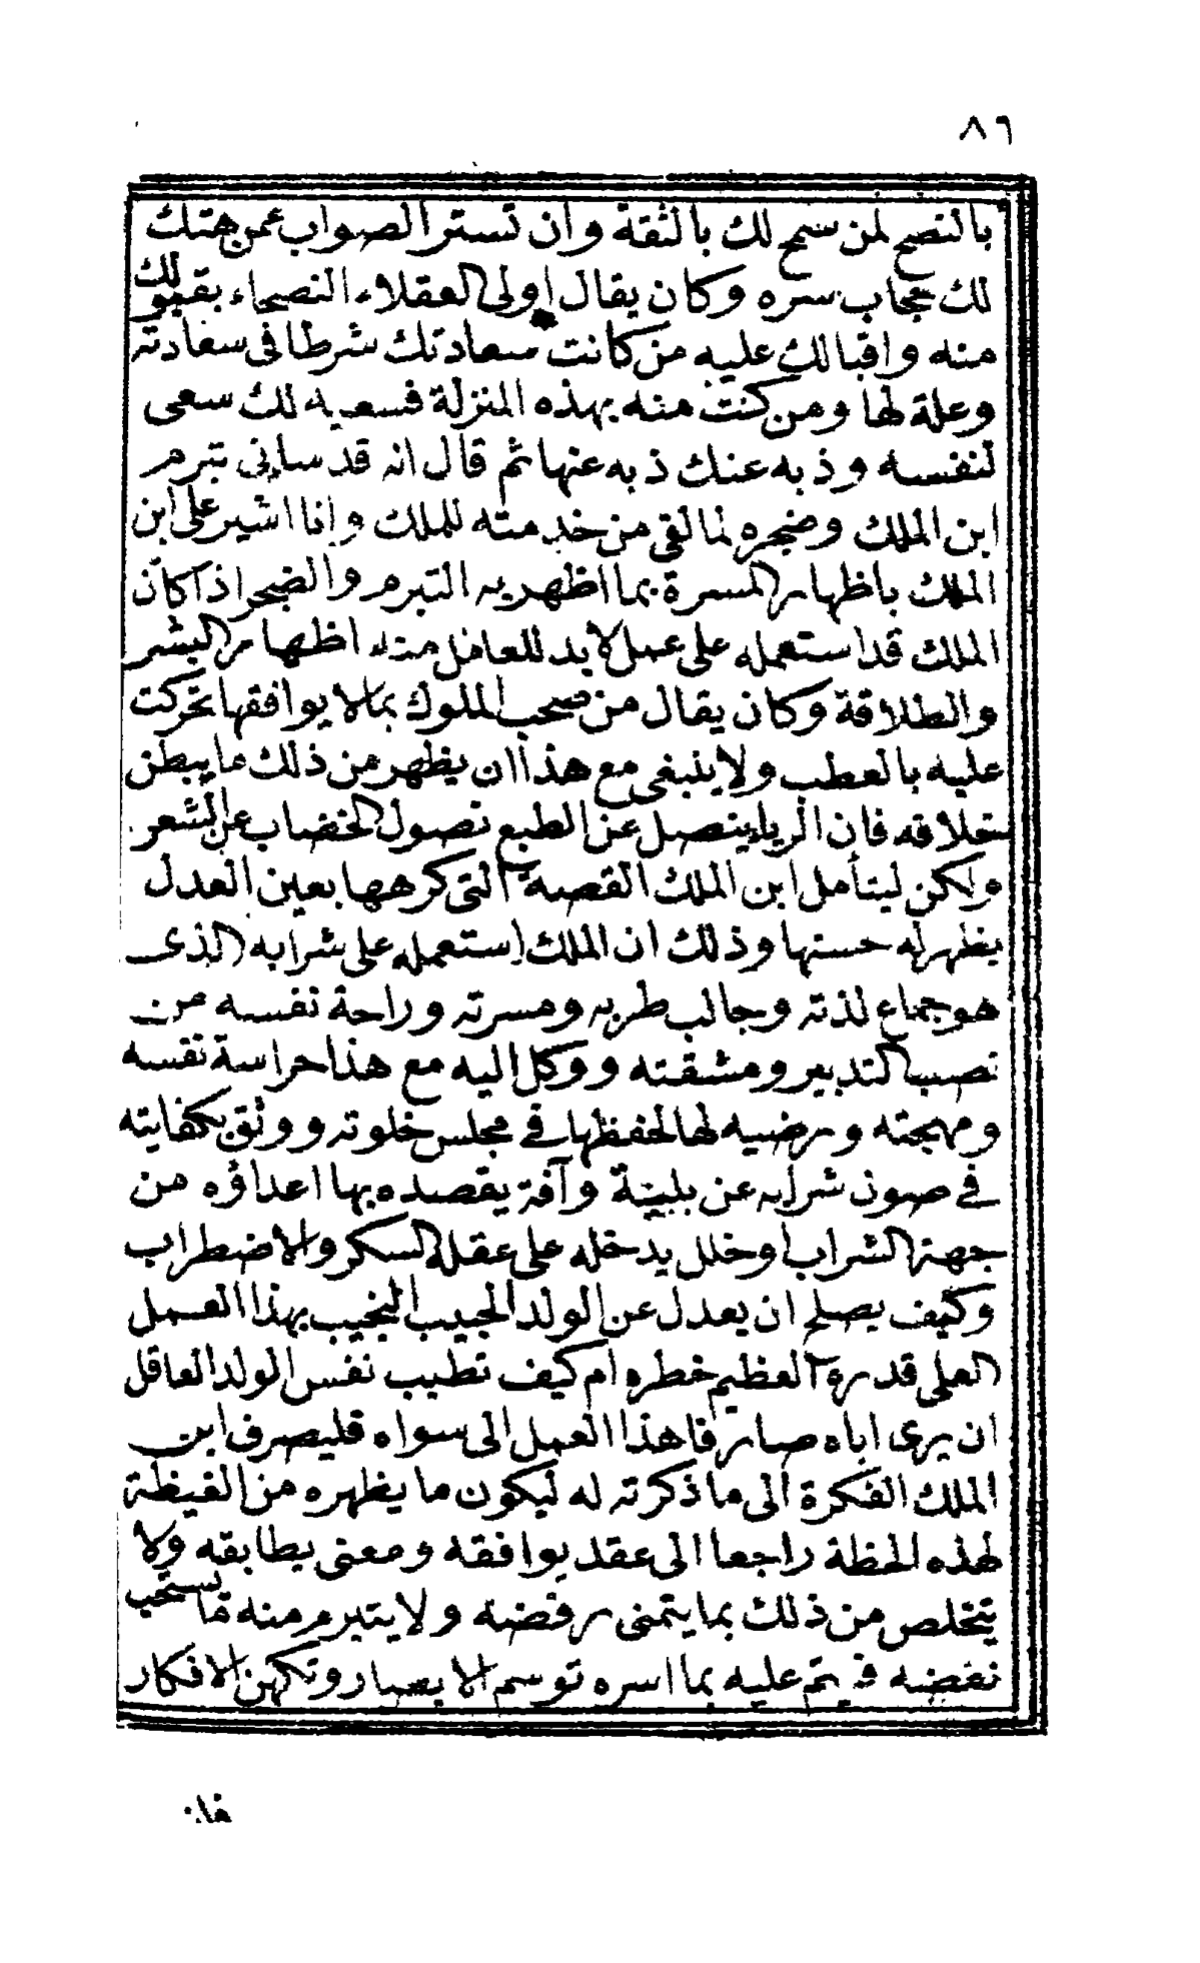 ٨٦
بالنصح لمن سمح لك بالثقة وان تستر الصواب عمن هتك
لك حجاب سره وكان يقال اولى العقلاء النصحاء بقبولك
منه واقبالك عليه من كانت سعادتك شرطا فى سعادته
وعلة لها ومن كنت منه بهذه المنزلة فسعيه لك سعى
لنفسه وذبه عنك ذبه عنها ثم قال انه قد ساءنى تبرم
ابن الملك وضجره لما لقى من خدمته للملك وانا اشير على ابن
الملك باظهار المسرة بما اظهر به التبرم والضجر اذا كان
الملك قد استعمله على عمل لابد للعامل منه اظهار البشر
والطلاقة وكان يقال من صحب الملوك بما لا يوافقها تحركت
عليه بالعطب ولا ينبغى مع هذا ان يظهر من ذلك ما يبطن
خلافه فان الرياء ينصل عن الطبع نصول الخضاب عن الشعر
ولكن ليتأمل ابن الملك القصة التى كرهها بعين العدل
يظهر له حسنها وذلك ان الملك استعمله على شرابه الذى
هو جماع لذته وجالب طربه ومسرته وراحة نفسه من
نصب التدبير ومشقته ووكل اليه مع هذا حراسة نفسه
ومهجته ورضيه لها لحفظها في مجلس خلوته ووثق بكفايته
في صون شرابه عن بلية وآفة يقصده بها اعداؤه من
جهة الشراب او خلل يدخله على عقله السكر والاضطراب
وكيف يصلح ان يعدل عن الولد الحبيب النجيب بهذا العمل
العلى قدره العظيم خطره ام كيف تطيب نفس الولد العاقل
ان يرى اباه صارفا هذا العمل الى سواه فليصرف ابن
الملك الفكرة الى ما ذكرته له ليكون ما يظهره من الغبطة
لهذه الحظة راجعا الى عقد يوافقه ومعنى يطابقه ولا
يتخلص من ذلك بما يتمنى رفضه ولا يتبرم منه تما تستحب
نغضه فيتم عليه بما اسره توسم الابصار وتكهن الافكار
فان